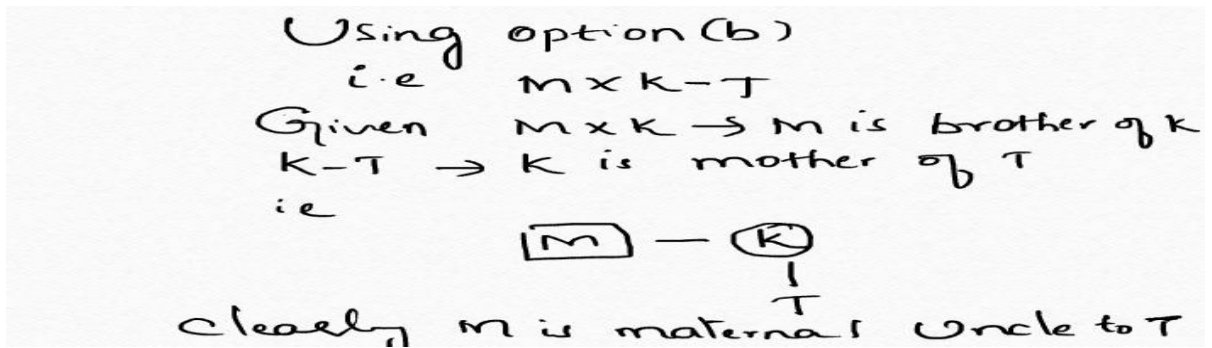 Using option (b)
i.e M × K - T
Given M × K → M is brother of K
K - T → K is mother of T
ie
M — K
T
Clearly M is maternal Uncle to T